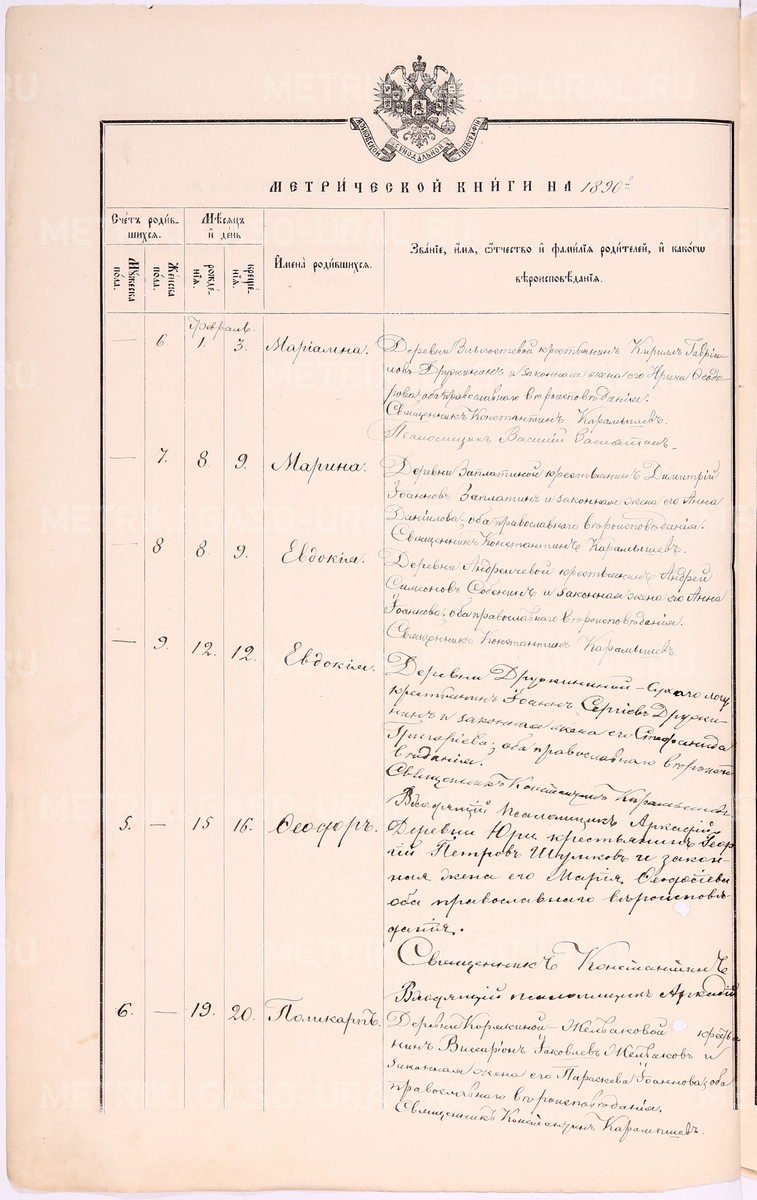 МОСКОВСКОЙ СѴНОДАЛЬНОЙ ТИПОГРАФІИ
МЕТРИ́ЧЕСКОЙ КНИ́ГИ НА 1890 г.
Сче́тъ роди́вшихся.
Мѣ́сяцъ и҆ де́нь
И҆мена̀ роди́вшихся.
Зва́нїе, и҆́мѧ, ѻ҆́тчество и҆ фами́лїѧ роди́телей, и҆ како́гѡ
вѣроисповѣ́данїѧ.
Му́жеска по́ла.
Же́нска по́ла.
рожде́нїѧ.
креще́нїѧ.
Февраль.
— 6. 1. 3. Маріамна. Деревни крестьянинъ Кириллъ Гаврі-
ловъ Дружининъ и законная жена его Ирина Ѳеодо-
рова, оба православнаго вѣроисповѣданія.
Священникъ Константинъ Карамышевъ.
Псаломщикъ Василій
— 7. 8. 9. Марина. Деревни Заплатиной крестьянинъ Димитрій
Іоанновъ Заплатинъ и законная жена его Анна
Даніилова; оба православнаго вѣроисповѣданія.
Священникъ Константинъ Карамышевъ.
— 8 8 9. Евдокія. Деревни Андреичевой крестьянинъ Андрей
Симеоновъ Собенинъ и законная жена его Анна
Іоаннова; оба православнаго вѣроисповѣданія.
Священникъ Константинъ Карамышевъ.
— 9. 12. 12. Евдокія. Деревни Дружининой-Сухаго логу
крестьянинъ Іоаннъ Сергіевъ Дружи-
нинъ и законная жена его Стефанида
Григоріева; оба православнаго вѣроиспо-
вѣданія.
Священникъ Константинъ Карамышевъ
Псаломщикъ Аркадій
5. — 15 16. Ѳеодоръ. Деревни Юри крестьянинъ Геор-
гій Петровъ Шуляковъ и закон-
ная жена его Марія Ѳеодосіева
оба православнаго вѣроисповѣ-
данія.
Священникъ Константинъ
псаломщикъ Аркадій
6. — 19. 20. Поликарпъ. Деревни Кормкиной-Желваковой кресть
нинъ Виссаріонъ Іаковлевъ Желваковъ и
законная жена его Параскева Іоаннова; оба
православнаго вѣроисповѣданія.
Священникъ Константинъ Карамышевъ.